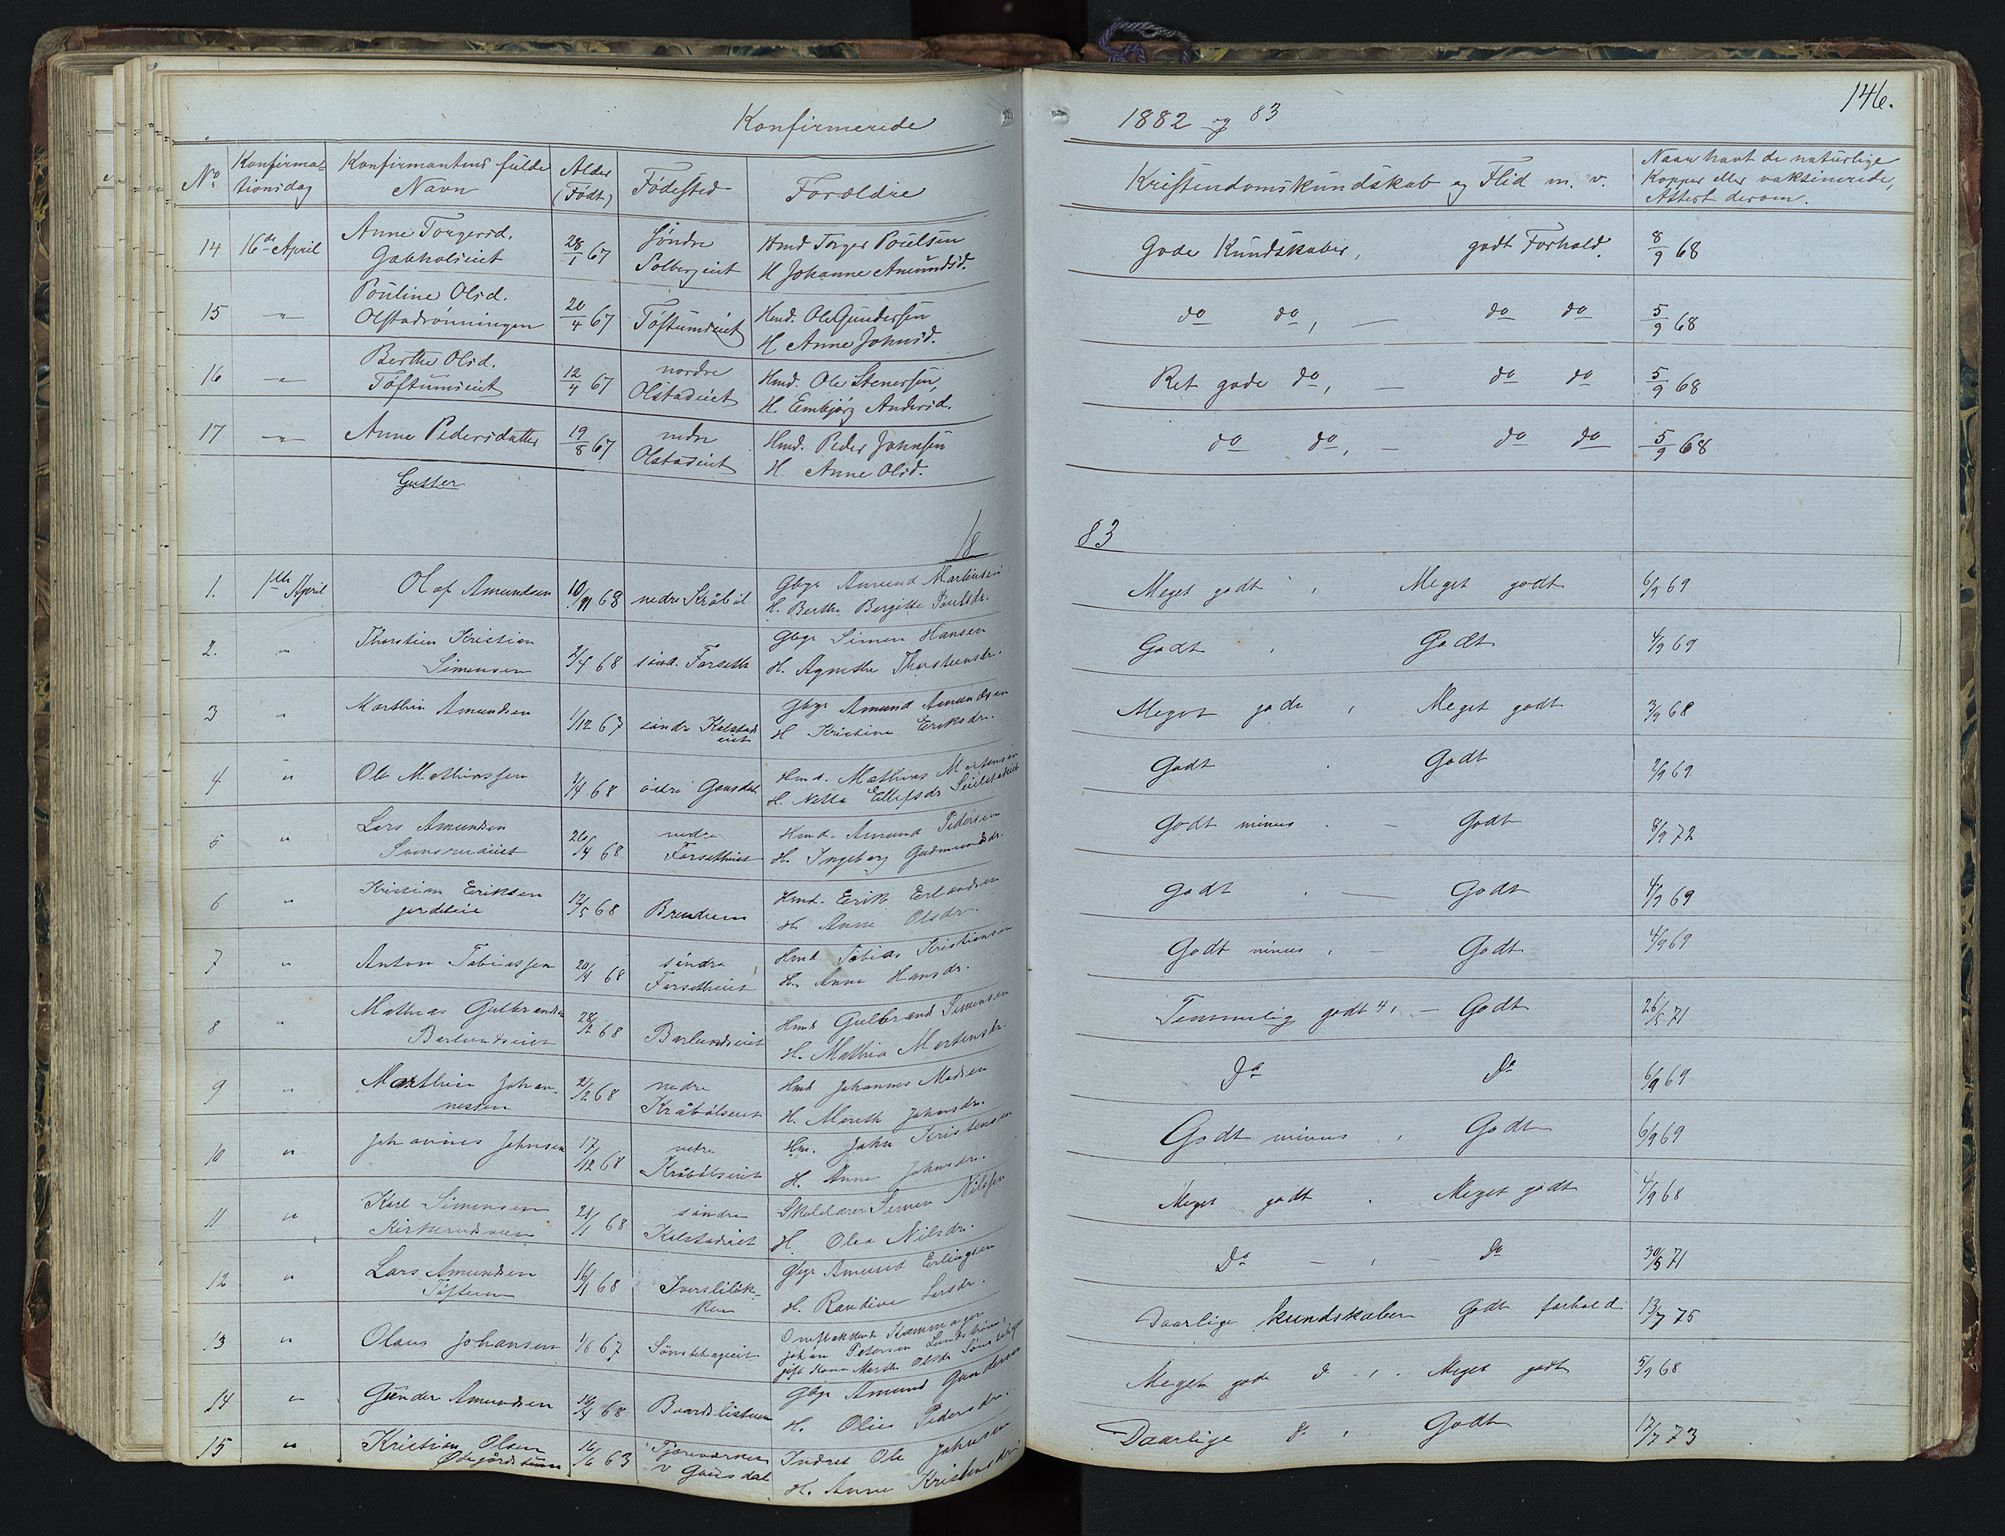 Konfirmerede
1882 og 83
146.
No. Konfirma-tionsdag Konfirmantens fulde Navn Alder (Født) Fødested Forældre Kristendomskundskab og Flid m. v. Naar havt de naturlige Kopper eller vaksinerede, Attest derom.
14 16de April Anne Torgersd. 28/1 67 Søndre Hmd Torger Poulsen Gode Kundskaber, godt Forhold. 8/9 68
Solbergeiet H Johanne Amundsd.
15 " Pauline Olsd. 20/4 67 Toftumseiet Hmd. Ole Gundersen do do, — do do 5/9 68
Olstadrønningen H Anne Johnsd.
16 " Berthe Olsd. 12/4 67 nordre Hmd. Ole Stenersen Ret gode do, — do do 5/9 68
Toftumseiet Olstadeiet H. Embjørg Andersd.
17 " Anne Pedersdatter 19/8 67 nedre Hmd. Peder Johnsen do do, — do do 5/9 68
Olstadeiet H. Anne Olsd.
Gutter
18
83
1. 1ste April Olaf Amundsen 10/11 68 nedre Kråbøl Gbgr Amund Martinsen Meget godt , Meget godt 6/9 69
H. Berthe Bergitte Poulsdr.
2. " Thorstein Kristian 2/4 68 sønd. Forseth Gbgr Simen Hansen Godt , Godt 4/9 69
Simensen H. Agnethe Thorsteinsdr.
3 " Marthin Amundsen 1/12 67 søndre Kilstad eiet Gbgr Amund Amundsen Meget gode , Meget godt 3/9 68
H Kristine Eriksdr.
4 " Ole Mathiassen 1/4 68 østre Gausdal Hmd. Mathias Mortensen Godt . Godt 2/9 69
H. Netta Ellefsdr
5 " Lars Amundsen 26/4 68 nedre Hmd. Amund Pedersen Godt minus . — Godt 8/9 72
Forsetheiet H. Ingeborg Gudmundsdr.
6 " Kristian Eriksen 12/5 68 Brudum Hmd. Erik Erlandsen Godt . — Godt 4/9 69
H. Anne Olsdr.
7 " Anton Tobiassen 20/4 68 søndre Hmd Tobias Kristiansen Godt minus , Godt 4/9 69
Forsetheiet H. Anne Hansdr.
8 " Mathias Gulbrandsen 28/2 68 Barlundseiet Hmd Gulbrand Simensen Temmelig godt 4, — Godt 26/5 71
Barlundseiet H. Mathia Mortensdr.
9 " Marthin Johan- 21/2 68 nedre Hmd Johannes Madsen Do Do 6/9 69
nessen Kråbølseiet H. Mareth Johnsdr.
10 " Johannes Johnsen 17/12 68 nedre Hm. John Kristensen Godt minus , Godt 6/9 69
Kråbølseiet H. Anne Johnsdr.
11 " Karl Simensen 21/1 68 søndre Skolelærer Simen Nilssen Meget godt . Meget godt 4/9 68
Kilstadeiet H. Olea Nilsdr.
12 " Lars Amundsen 16/1 68 Iversløk- Gbgr Amund Erlingsen Do — , — Do 30/5 71
Toftum ken H. Randine Larsdr.
13 " Olaus Johansen 1/6 67 Sønstehageiet Johan Petersen Daarlige kundskaber Godt forhold 13/7 75
gift Kone Marthe Olsdr
14 " Gunder Amundsen 10/4 68 Gbgr Amund Gundersen Meget gode do , . Meget godt 5/9 68
H. Olies Pedersdr.
15 " Kristian Olsen 16/6 63 Inderst Ole Johnsen Daarlige do , Godt 12/7 73
Ødegårdstuen v Gausdal H. Anne Kristensdr.